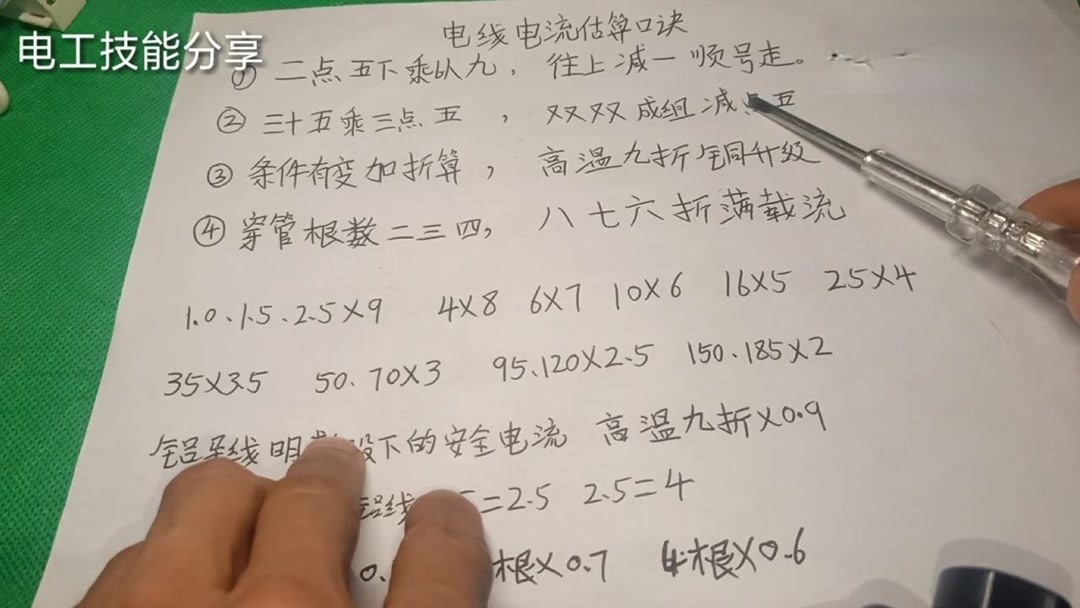 电工技能分享
电线电流估算口诀
① 二点五下乘以九，往上减一顺号走。
② 三十五乘三点五，双双成组减点五
③ 条件有变加折算，高温九折铜升级
④ 穿管根数二三四，八七六折满载流
1.0、1.5、2.5×9 4×8 6×7 10×6 16×5 25×4
35×3.5 50、70×3 95、120×2.5 150、185×2
铝导线明敷设下的安全电流 高温九折×0.9
铝线 =2.5 2.5=4
0. 根×0.7 4根×0.6